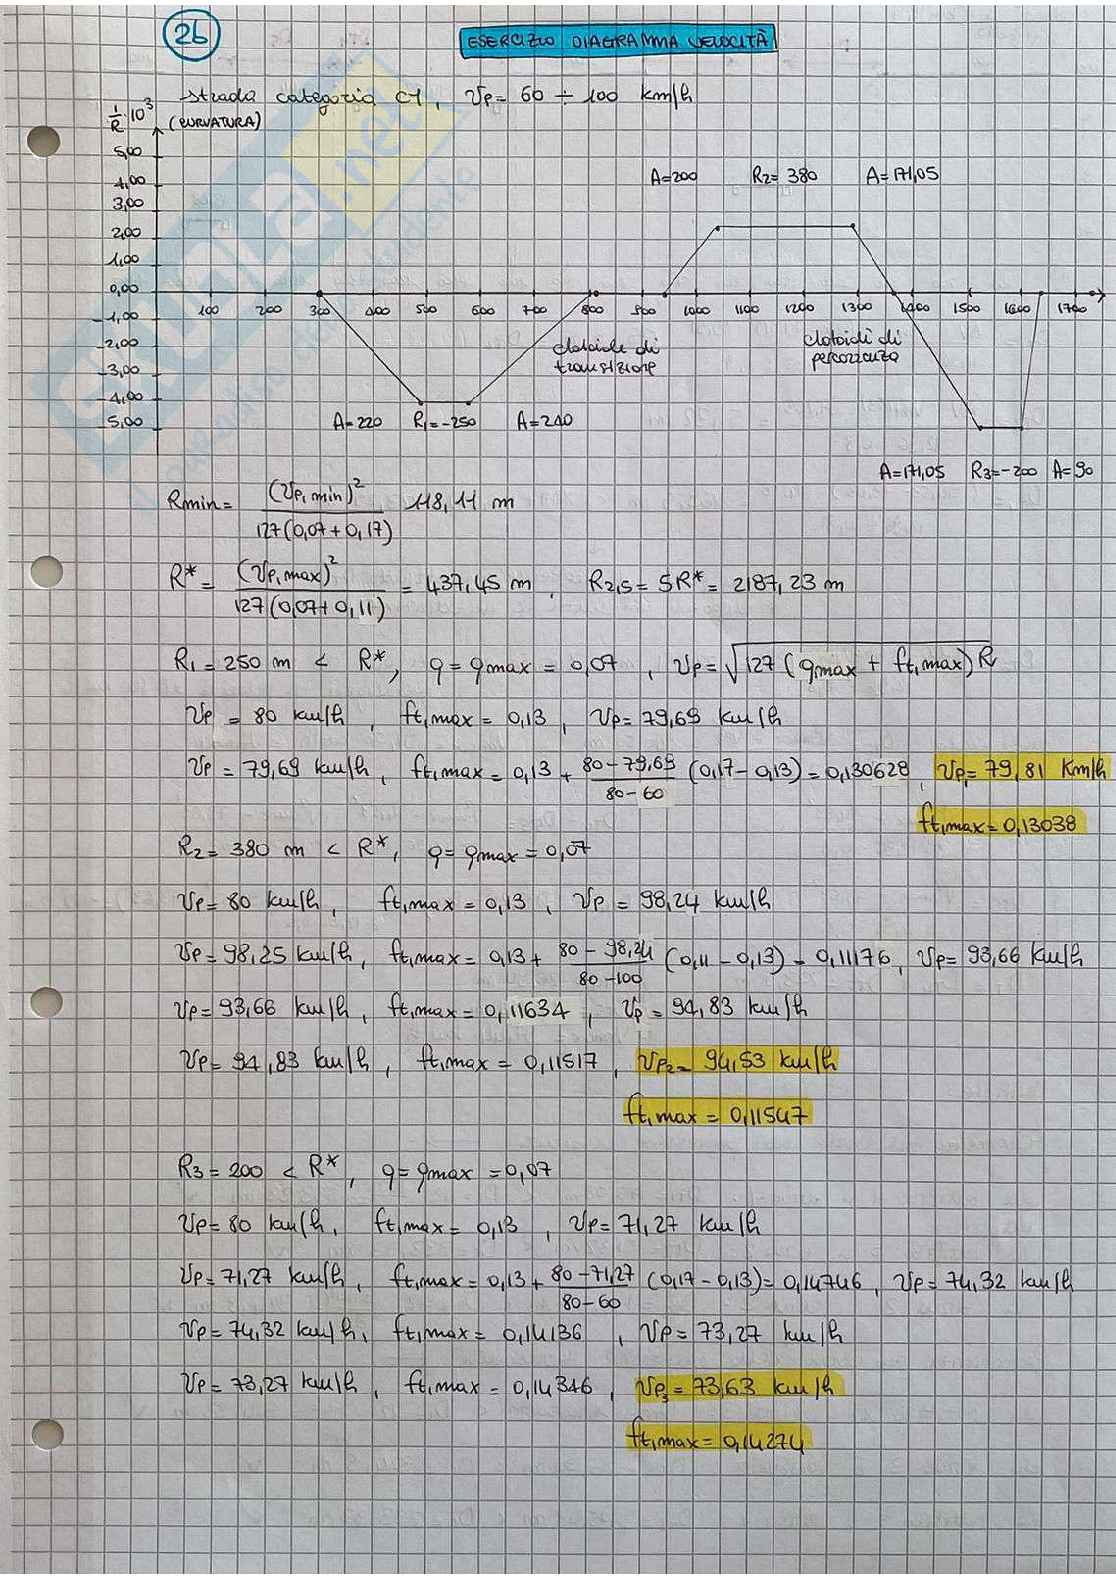 26
ESERCIZIO DIAGRAMMA VELOCITÀ
strada categoria C1, Vp = 60 ÷ 100 km/h
1/R · 10³ (CURVATURA)
5,00
4,00
3,00
2,00
1,00
0,00
-1,00
-2,00
-3,00
-4,00
5,00
A=200 R2= 380 A=171,05
100 200 300 400 500 600 700 800 900 1000 1100 1200 1300 1400 1500 1600 1700
clotoide di transizione
clotoidi di percorrenza
A=220 R1=-250 A=240
A=171,05 R3=-200 A=90
Rmin= (Vp,min)² / 127(0,07+0,17) 118,11 m
R* = (Vp,max)² / 127(0,07+0,11) = 437,45 m, R2,5 = 5R* = 2187,23 m
R1 = 250 m < R*, q = qmax = 0,07, Vp = √127 (qmax + ft,max) R
Vp = 80 km/h, ft,max = 0,13, Vp = 79,69 km/h
Vp = 79,69 km/h, ft,max = 0,13 + 80-79,69 / 80-60 (0,17-0,13) = 0,130628, Vp1 = 79,81 Km/h
ft,max = 0,13038
R2 = 380 m < R*, q = qmax = 0,07
Vp = 80 km/h, ft,max = 0,13, Vp = 98,24 km/h
Vp = 98,25 km/h, ft,max = 0,13 + 80-98,24 / 80-100 (0,11-0,13) = 0,11176, Vp = 93,66 km/h
Vp = 93,66 km/h, ft,max = 0,11634, Vp = 94,83 km/h
Vp = 94,83 km/h, ft,max = 0,11517, Vp2 = 94,53 km/h
ft,max = 0,11547
R3 = 200 < R*, q = qmax = 0,07
Vp = 80 km/h, ft,max = 0,13, Vp = 71,27 km/h
Vp = 71,27 km/h, ft,max = 0,13 + 80-71,27 / 80-60 (0,17-0,13) = 0,14746, Vp = 74,32 km/h
Vp = 74,32 km/h, ft,max = 0,14136, Vp = 73,27 km/h
Vp = 73,27 km/h, ft,max = 0,14346, Vp3 = 73,63 km/h
ft,max = 0,14274